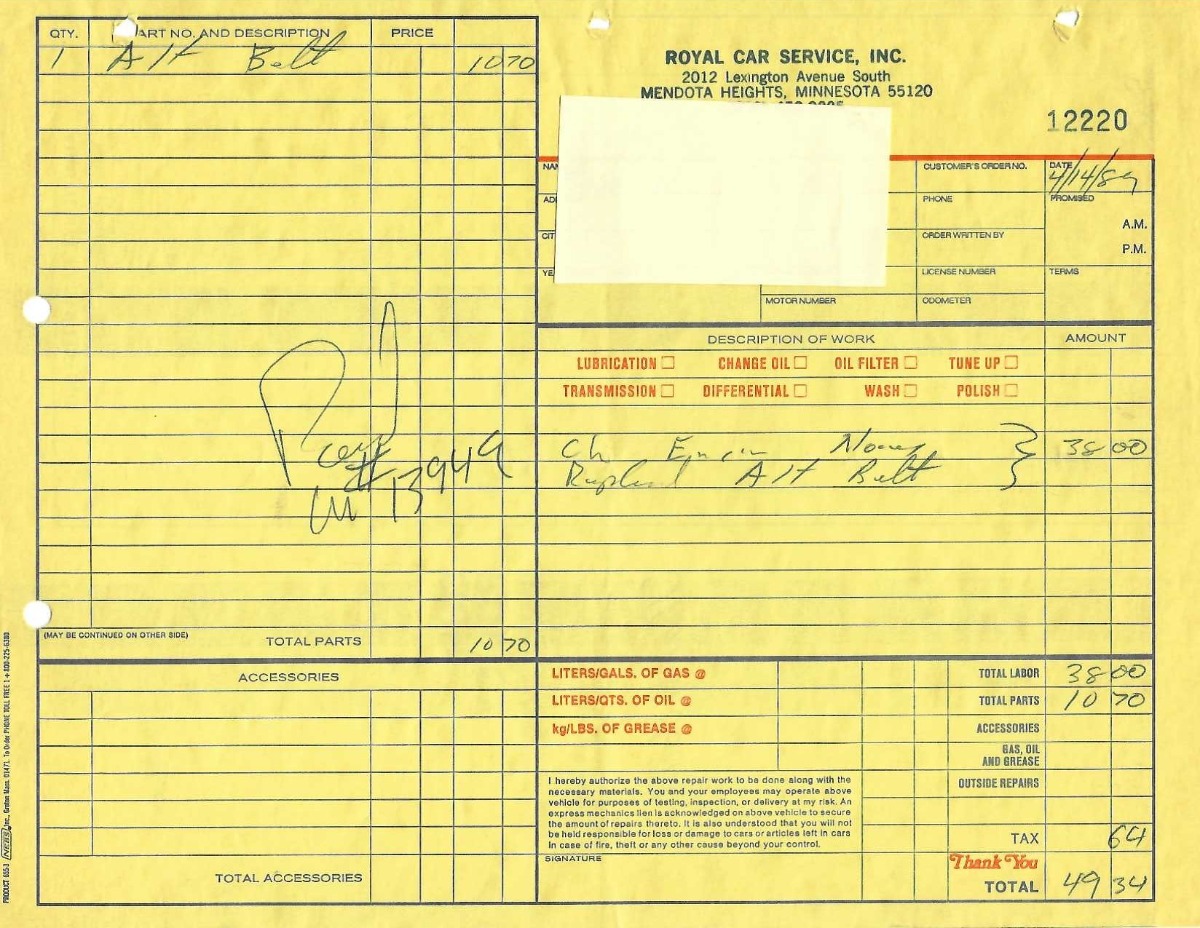 QTY. PART NO. AND DESCRIPTION PRICE
1 Alt Belt 10 70
ROYAL CAR SERVICE, INC.
2012 Lexington Avenue South
MENDOTA HEIGHTS, MINNESOTA 55120
12220
CUSTOMER'S ORDER NO.
DATE
4/14/89
PHONE
PROMISED
A.M.
P.M.
ORDER WRITTEN BY
LICENSE NUMBER
TERMS
MOTOR NUMBER
ODOMETER
DESCRIPTION OF WORK AMOUNT
LUBRICATION ☐ CHANGE OIL ☐ OIL FILTER ☐ TUNE UP ☐
TRANSMISSION ☐ DIFFERENTIAL ☐ WASH ☐ POLISH ☐
Ch } 38 00
Alt Belt
13949
(MAY BE CONTINUED ON OTHER SIDE) TOTAL PARTS 10 70
ACCESSORIES
TOTAL ACCESSORIES
LITERS/GALS. OF GAS @
LITERS/QTS. OF OIL @
kg/LBS. OF GREASE @
I hereby authorize the above repair work to be done along with the
necessary materials. You and your employees may operate above
vehicle for purposes of testing, inspection, or delivery at my risk. An
express mechanics lien is acknowledged on above vehicle to secure
the amount of repairs thereto. It is also understood that you will not
be held responsible for loss or damage to cars or articles left in cars
in case of fire, theft or any other cause beyond your control.
SIGNATURE
TOTAL LABOR 38 00
TOTAL PARTS 10 70
ACCESSORIES
GAS, OIL
AND GREASE
OUTSIDE REPAIRS
TAX 64
Thank You
TOTAL 49 34
PRODUCT 655-3 NEBS Inc., Groton Mass. 01471. To Order PHONE TOLL FREE 1+800-225-6380